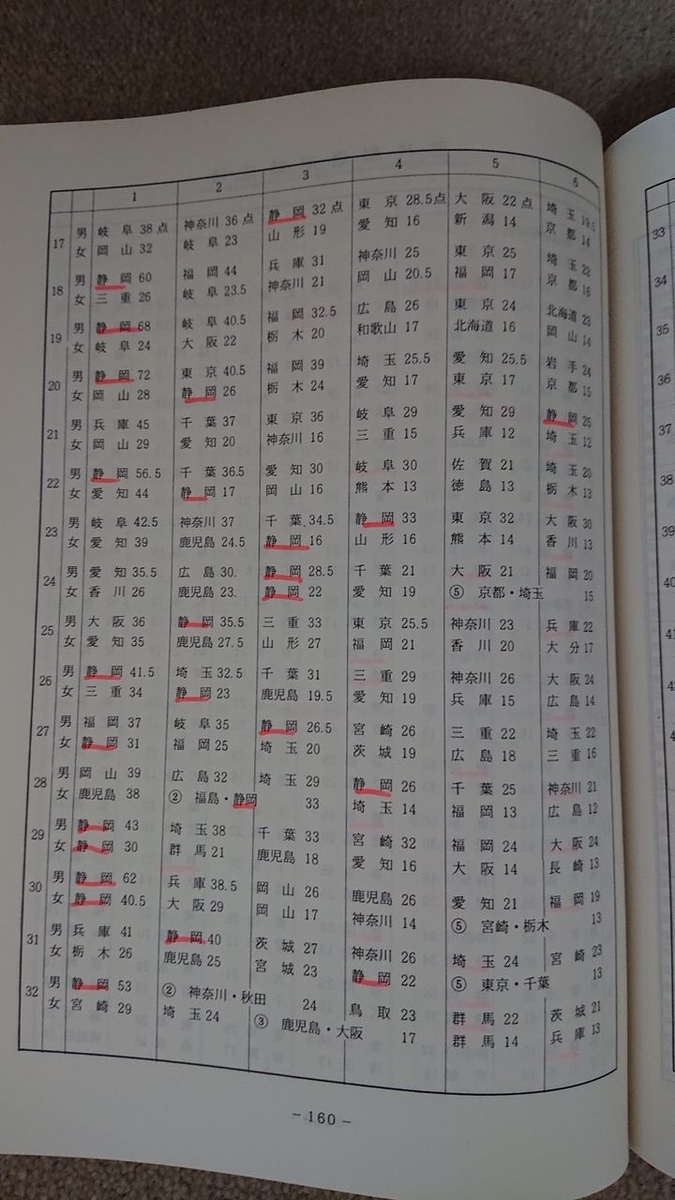 1 2 3 4 5 6
17 男 岐阜 38点 神奈川 36点 静岡 32点 東京 28.5点 大阪 22点 埼玉 19.5
女 岡山 32 岐阜 23 山形 19 愛知 16 新潟 14 京都 14
18 男 静岡 60 福岡 44 兵庫 31 神奈川 25 東京 25 埼玉 22
女 三重 26 岐阜 23.5 神奈川 21 岡山 20.5 福岡 17 京都 16
19 男 静岡 68 岐阜 40.5 福岡 32.5 広島 26 東京 24 北海道 23
女 岐阜 24 大阪 22 栃木 20 和歌山 17 北海道 16 岡山 14
20 男 静岡 72 東京 40.5 福岡 39 埼玉 25.5 愛知 25.5 岩手 24
女 岡山 28 静岡 26 栃木 24 愛知 17 東京 17 京都 15
21 男 兵庫 45 千葉 37 東京 36 岐阜 29 愛知 29 静岡 25
女 岡山 29 愛知 20 神奈川 16 三重 15 兵庫 12 埼玉 12
22 男 静岡 56.5 千葉 36.5 愛知 30 岐阜 30 佐賀 21 埼玉 20
女 愛知 44 静岡 17 岡山 16 熊本 13 徳島 13 栃木 13
23 男 岐阜 42.5 神奈川 37 千葉 34.5 静岡 33 東京 32 大阪 30
女 愛知 39 鹿児島 24.5 静岡 16 山形 16 熊本 14 香川 13
24 男 愛知 35.5 広島 30. 静岡 28.5 千葉 21 大阪 21 福岡 20
女 香川 26 鹿児島 23. 静岡 22 愛知 19 ⑤ 京都・埼玉 15
25 男 大阪 36 静岡 35.5 三重 33 東京 25.5 神奈川 23 兵庫 22
女 愛知 35 鹿児島 27.5 山形 27 福岡 21 香川 20 大分 17
26 男 静岡 41.5 埼玉 32.5 千葉 31 三重 29 神奈川 26 大阪 24
女 三重 34 静岡 23 鹿児島 19.5 愛知 19 兵庫 15 広島 14
27 男 福岡 37 岐阜 35 静岡 26.5 宮崎 26 三重 22 埼玉 22
女 静岡 31 福岡 25 埼玉 20 茨城 19 広島 18 三重 16
28 男 岡山 39 広島 32 埼玉 29 静岡 26 千葉 25 神奈川 21
女 鹿児島 38 ② 福島・静岡 33 埼玉 14 福岡 13 広島 12
29 男 静岡 43 埼玉 38 千葉 33 宮崎 32 福岡 24 大阪 24
女 静岡 30 群馬 21 鹿児島 18 愛知 16 大阪 14 長崎 13
30 男 静岡 62 兵庫 38.5 岡山 26 鹿児島 26 愛知 21 福岡 19
女 静岡 40.5 大阪 29 岡山 17 神奈川 14 ⑤ 宮崎・栃木 13
31 男 兵庫 41 静岡 40 茨城 27 神奈川 26 埼玉 24 宮崎 23
女 栃木 26 鹿児島 25 宮城 23 静岡 22 ⑤ 東京・千葉 13
32 男 静岡 53 ② 神奈川・秋田 24 鳥取 23 群馬 22 茨城 21
女 宮崎 29 埼玉 24 ③ 鹿児島・大阪 17 群馬 14 兵庫 13
-160-
33
34
35
36
37
38
39